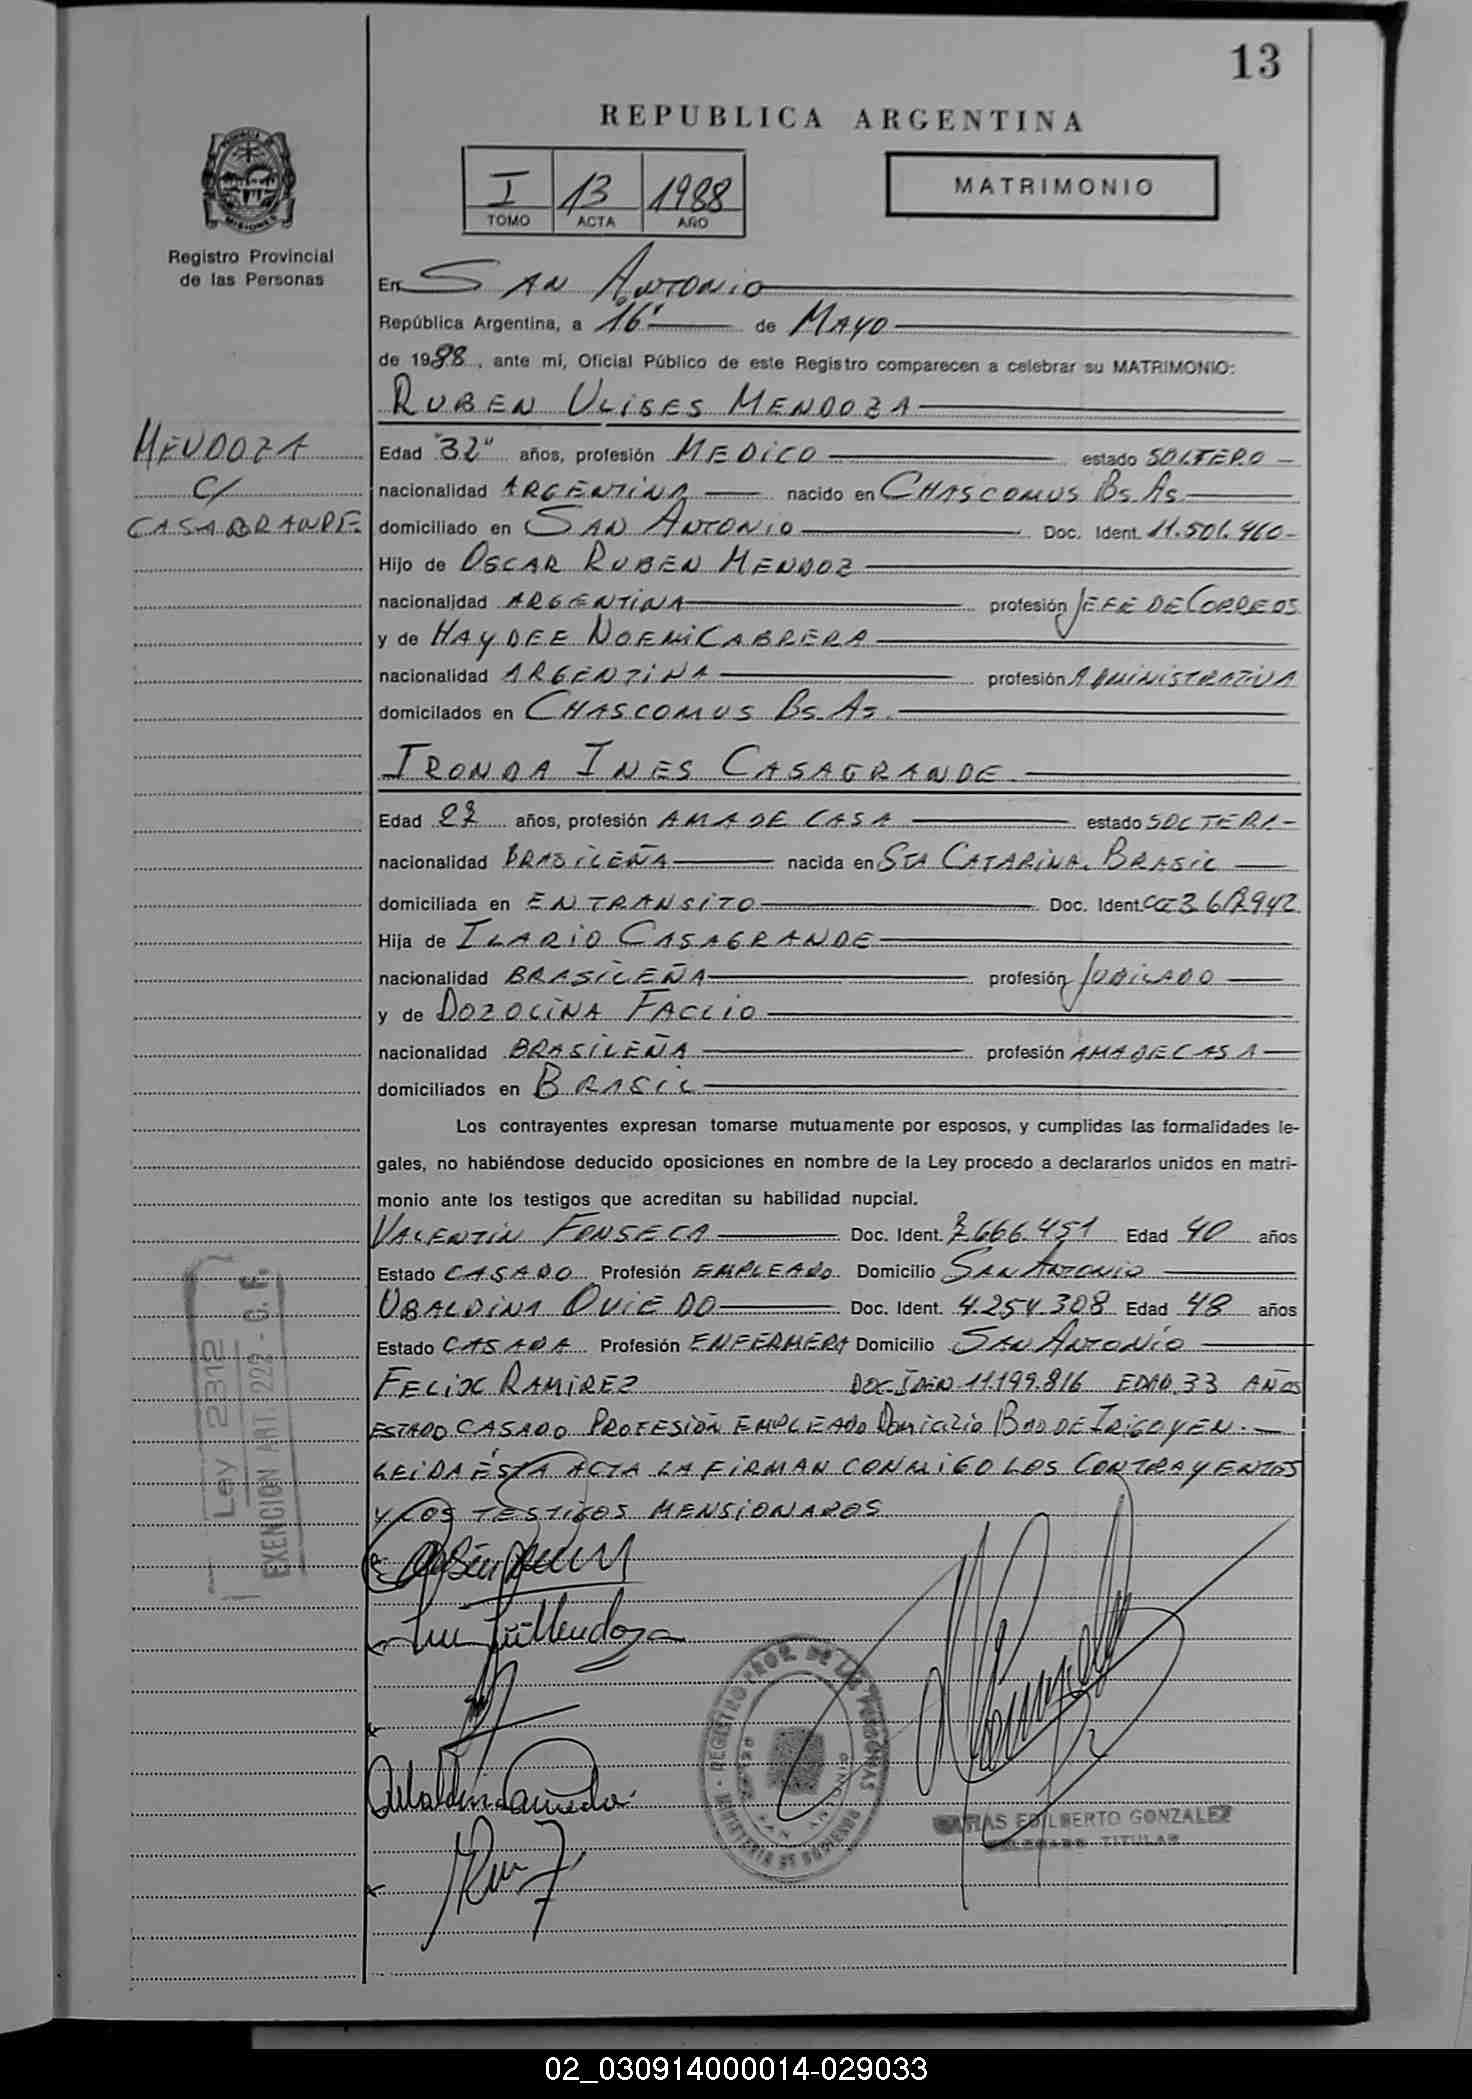 13
REPUBLICA ARGENTINA
I 13 1988
TOMO ACTA AÑO
MATRIMONIO
PROVINCIA DE MISIONES
Registro Provincial
de las Personas
En SAN ANTONIO
República Argentina, a "16" de MAYO
de 1988, ante mí, Oficial Público de este Registro comparecen a celebrar su MATRIMONIO:
RUBEN ULISES MENDOZA
MENDOZA
C/
CASAGRANDE
Edad "32" años, profesión MEDICO estado SOLTERO -
nacionalidad ARGENTINA nacido en CHASCOMUS Bs. As.
domiciliado en SAN ANTONIO Doc. Ident. 11.501.460-
Hijo de OSCAR RUBEN MENDOZ
nacionalidad ARGENTINA profesión JEFE DE CORREOS
y de HAYDEE NOEMI CABRERA
nacionalidad ARGENTINA profesión ADMINISTRATIVA
domicilados en CHASCOMUS Bs. As.
IRONDA INES CASAGRANDE
Edad años, profesión AMA DE CASA estado SOLTERA-
nacionalidad BRASILEÑA nacida en STA CATARINA. BRASIL
domiciliada en EN TRANSITO Doc. Ident.
Hija de ILARIO CASAGRANDE
nacionalidad BRASILEÑA profesión JUBILADO
y de DOZOLINA FACLIO
nacionalidad BRASILEÑA profesión AMA DE CASA
domiciliados en BRASIL
Los contrayentes expresan tomarse mutuamente por esposos, y cumplidas las formalidades le-
gales, no habiéndose deducido oposiciones en nombre de la Ley procedo a declararlos unidos en matri-
monio ante los testigos que acreditan su habilidad nupcial.
VALENTIN FONSECA Doc. Ident. 7.666.451 Edad 40 años
Estado CASADO Profesión EMPLEADO Domicilio SAN ANTONIO
UBALDINA OVIEDO Doc. Ident. 4.254.308 Edad 48 años
Estado CASADA Profesión ENFERMERA Domicilio SAN ANTONIO
FELIX RAMIREZ DOC. IDEN 11.199.816 EDAD 33 AÑOS
ESTADO CASADO PROFESIÓN EMPLEADO Domicilio BDO DE IRIGOYEN.-
LEIDA ÉSTA ACTA LA FIRMAN CONMIGO LOS CONTRAYENTES
Y LOS TESTIGOS MENSIONADOS
Ley 2312
EXENCION ART. 222 - C. F.
Mendoza
Ubaldina Oviedo
REGISTRO PROV. DE LAS PERSONAS
MINISTERIO DE GOBIERNO
SAN ANTONIO
MATIAS EDILBERTO GONZALEZ
DELEGADO TITULAR
02_030914000014-029033